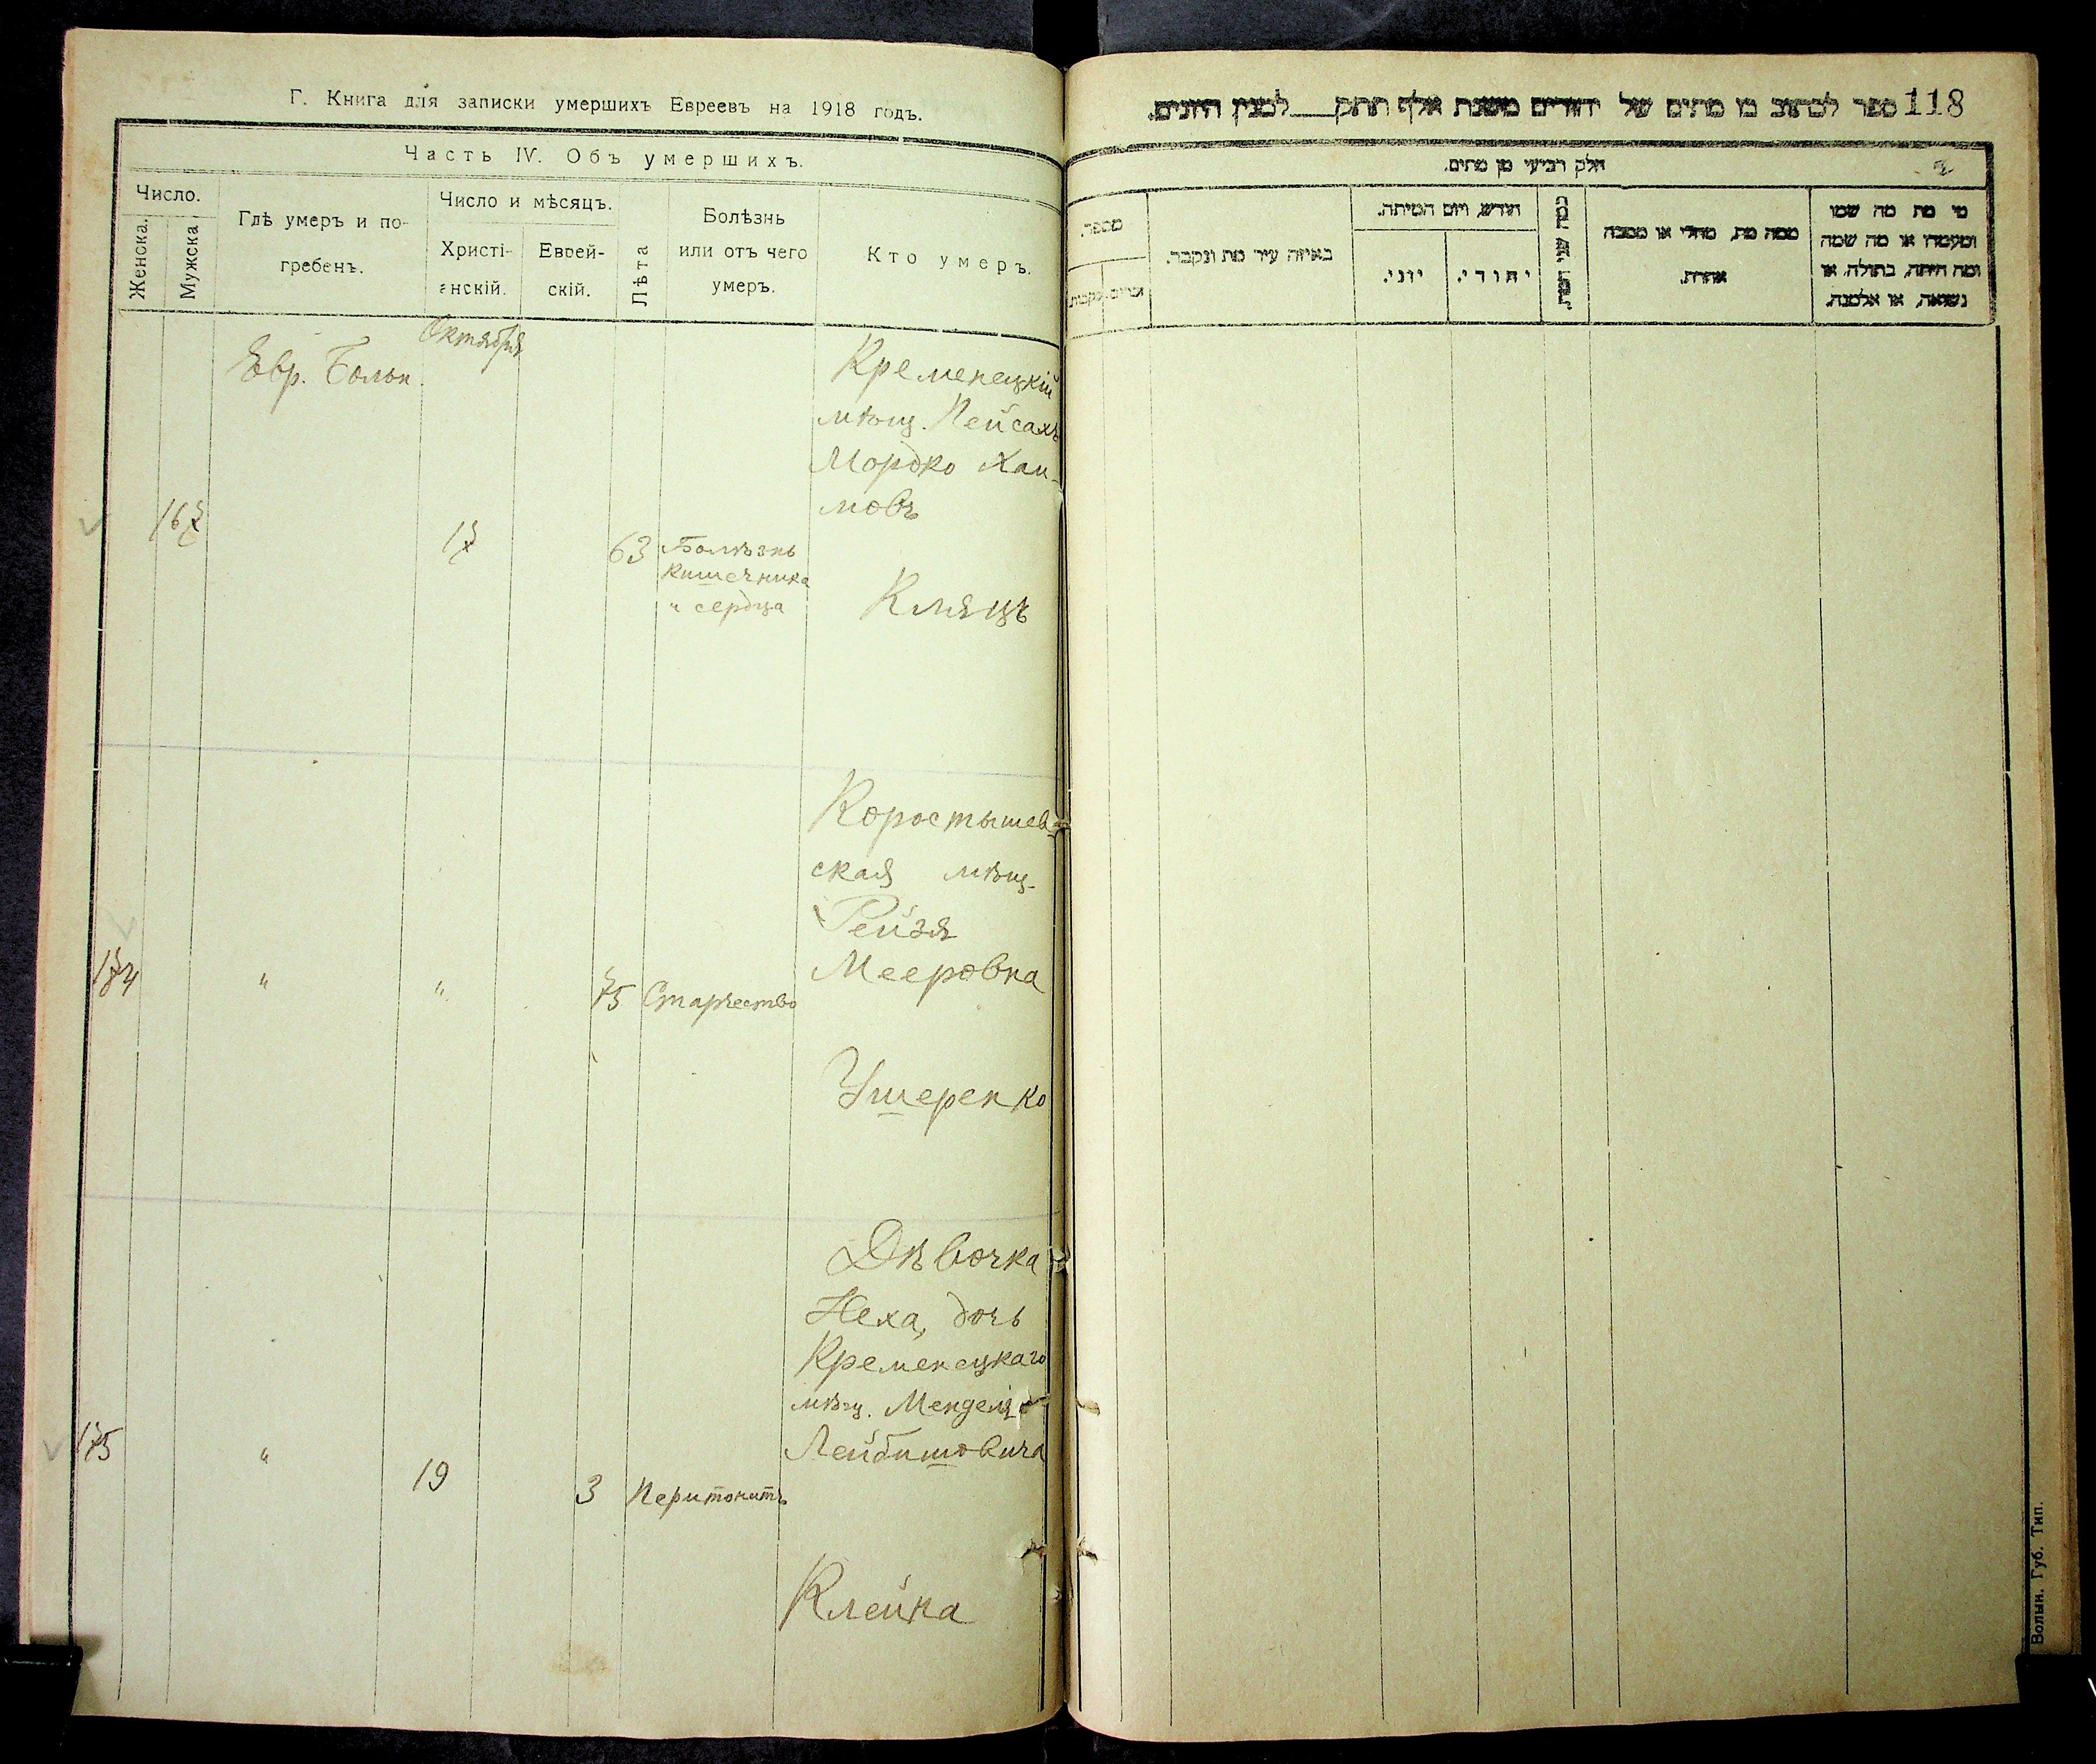 Г. Книга для записки умершихъ Евреевъ на 1918 годъ.
Часть IV. Объ умершихъ.
Число.
Женска.
Мужска
Гдѣ умеръ и по-
гребенъ.
Число и мѣсяцъ.
Христі-
анскій.
Еврей-
скій.
Лѣта
Болѣзнь
или отъ чего
умеръ.
Кто умеръ.
Октября
Евр. Больн.
Кременецкій
мѣщ. Пейсахъ
Мордко Хаи-
мовъ
167
17
63
Болѣзнь
кишечника
и сердца
Кляцъ
Коростышев-
ская мѣщ.
Рейзя
Мееровна
174
"
"
75
Старчество
Ушеренко
Дѣвочка
Неха, дочь
Кременецкаго
мѣщ. Менделя
Лейбишовича
175
"
19
3
Перитонитъ
Клейна
118
ספר לכתוב בו מתים של יהודים משנת אלף תתק___למנין היונים.
חלק רביעי מן מתים.
מספר.
זכרים.
נקבות.
באיזה עיר מת ונקבר.
חודש, ויום המיתה.
יוני.
יהודי.
כמה שני המת.
ממה מת, מחלי או מסבה
אחרת.
מי מת מה שמו
ומעמדו או מה שמה
ומה היתה, בתולה, או
נשואה, או אלמנה.
Волын. Губ. Тип.